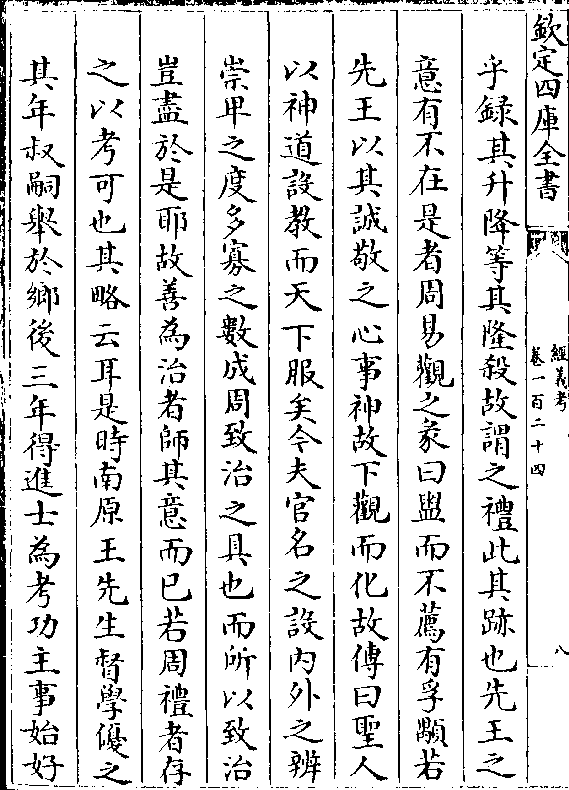 欽定四庫全書
經義考
卷一百二十四
八
乎録其升降等其隆殺故謂之禮此其跡也先王之
意有不在是者周易觀之彖曰盥而不薦有孚顒若
先王以其誠敬之心事神故下觀而化故傳曰聖人
以神道設教而天下服矣今夫官名之設内外之辨
崇卑之度多寡之數成周致治之具也而所以致治
豈盡於是耶故善為治者師其意而已若周禮者存
之以考可也其略云耳是時南原王先生督學優之
其年叔嗣舉於鄉後三年得進士為考功主事始好